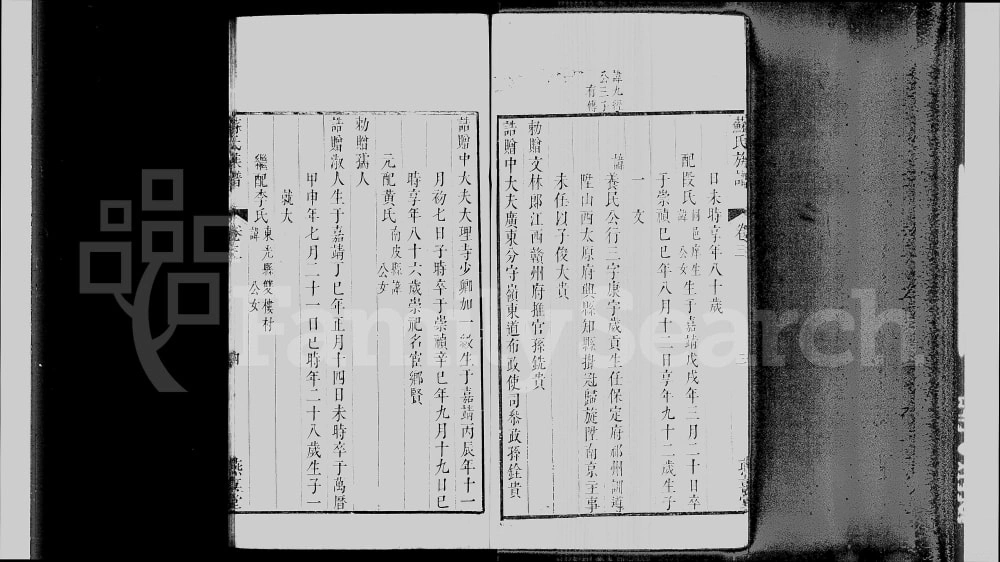 蘇氏族譜 卷三 三
日未時享年八十歲
配段氏 同邑庠生 諱 公女 生于嘉靖戊戌年三月二十日卒
于崇禎己巳年八月十二日享年九十二歲生子
一 文
諱九
公三子
有傳
諱養民公行三字康宇歲貢生任保定府祁州訓導
陞山西太原府興縣知縣掛冠歸旋陞南京主事
未任以子俊大貴
勅贈文林郎江西贛州府推官孫銑貴
誥贈中大夫廣東分守嶺東道布政使司參政孫銓貴
誥贈中大夫大理寺少卿加一級生于嘉靖丙辰年十一
月初七日子時卒于崇禎辛巳年九月十九日巳
時享年八十六歲崇祀名宦鄉賢
元配黃氏 南皮縣諱 公女
勅贈孺人
誥贈淑人生于嘉靖丁巳年正月十四日未時卒于萬曆
甲申年七月二十一日巳時年二十八歲生子一
就大
繼配李氏 東光縣雙樓村 諱 公女
蘇氏族譜 卷三 四
FamilySearch